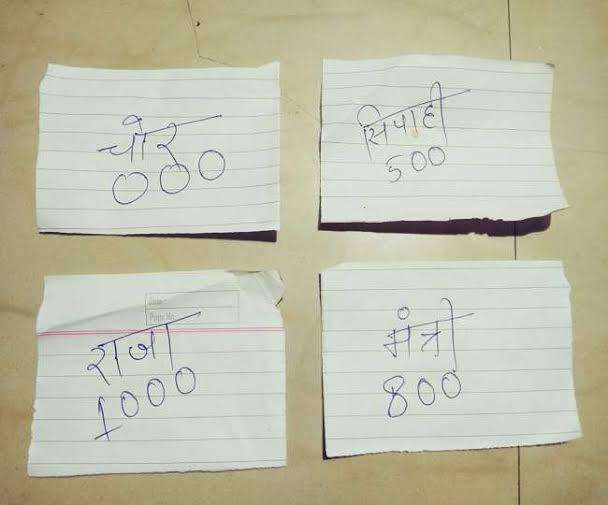 चोर
000
सिपाही
500
Page No.
राजा
1000
मंत्री
800